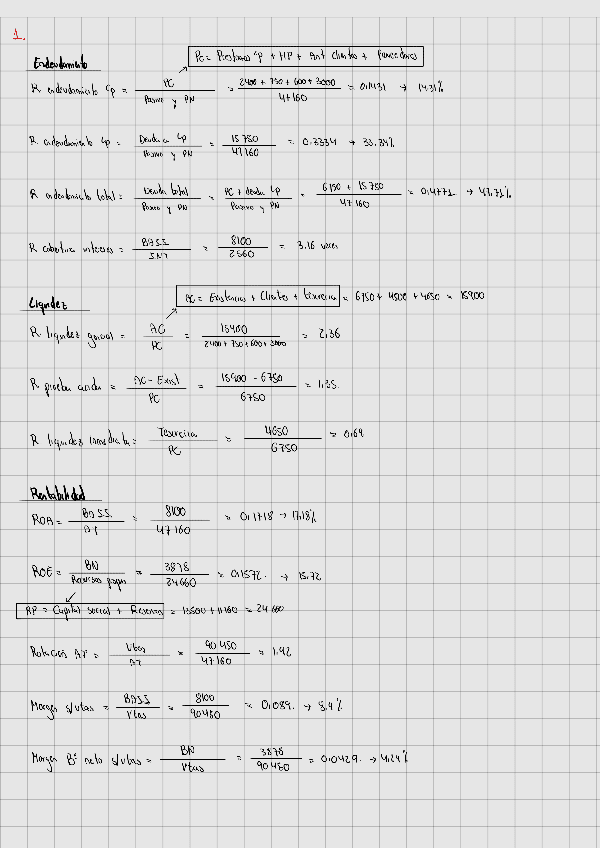 1.
PC = Prestamos cp + HP + Ant clientes + Proveedores
Endeudamiento
R endeudamiento cp = PC / Pasivo y PN = 2400 + 750 + 600 + 3000 / 47160 = 0,1431 → 14,31%
R endeudamiento Lp = Deuda a Lp / Pasivo y PN = 15750 / 47160 = 0,3334 → 33,34%
R endeudamiento total = Deuda total / Pasivo y PN = PC + deuda Lp / Pasivo y PN = 6750 + 15750 / 47160 = 0,4771 → 47,71%
R cobertura intereses = BAII / INT = 8100 / 2560 = 3,16 veces
AC = Existencias + Clientes + tesoreria = 6750 + 4500 + 4650 = 15900
Liquidez
R liquidez general = AC / PC = 15900 / 2400 + 750 + 600 + 3000 = 2,36
R prueba acida = AC - Exist / PC = 15900 - 6750 / 6750 = 1,35.
R liquidez inmediata = Tesoreria / PC = 4650 / 6750 = 0,69
Rentabilidad
ROA = BAII / AT = 8100 / 47160 = 0,1718 → 17,18%
ROE = BN / Recursos propios = 3878 / 24660 = 0,1572. → 15,72
RP = Capital social + Reservas = 13500 + 11160 = 24660
Rotación AT = Vtas / AT = 90450 / 47160 = 1,92
Margen s/vtas = BAII / Vtas = 8100 / 90450 = 0,089. → 8,9%
Margen Bº neto s/vtas = BN / Vtas = 3878 / 90450 = 0,0429. → 4,29%